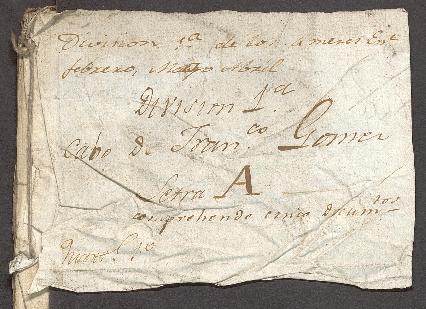 Division 1a de los 4 meses En
febrero, Mayo Abril
Division 1.a
Cabo de Fran.co Gomez
Letra A
comprehende cinco docum.tos